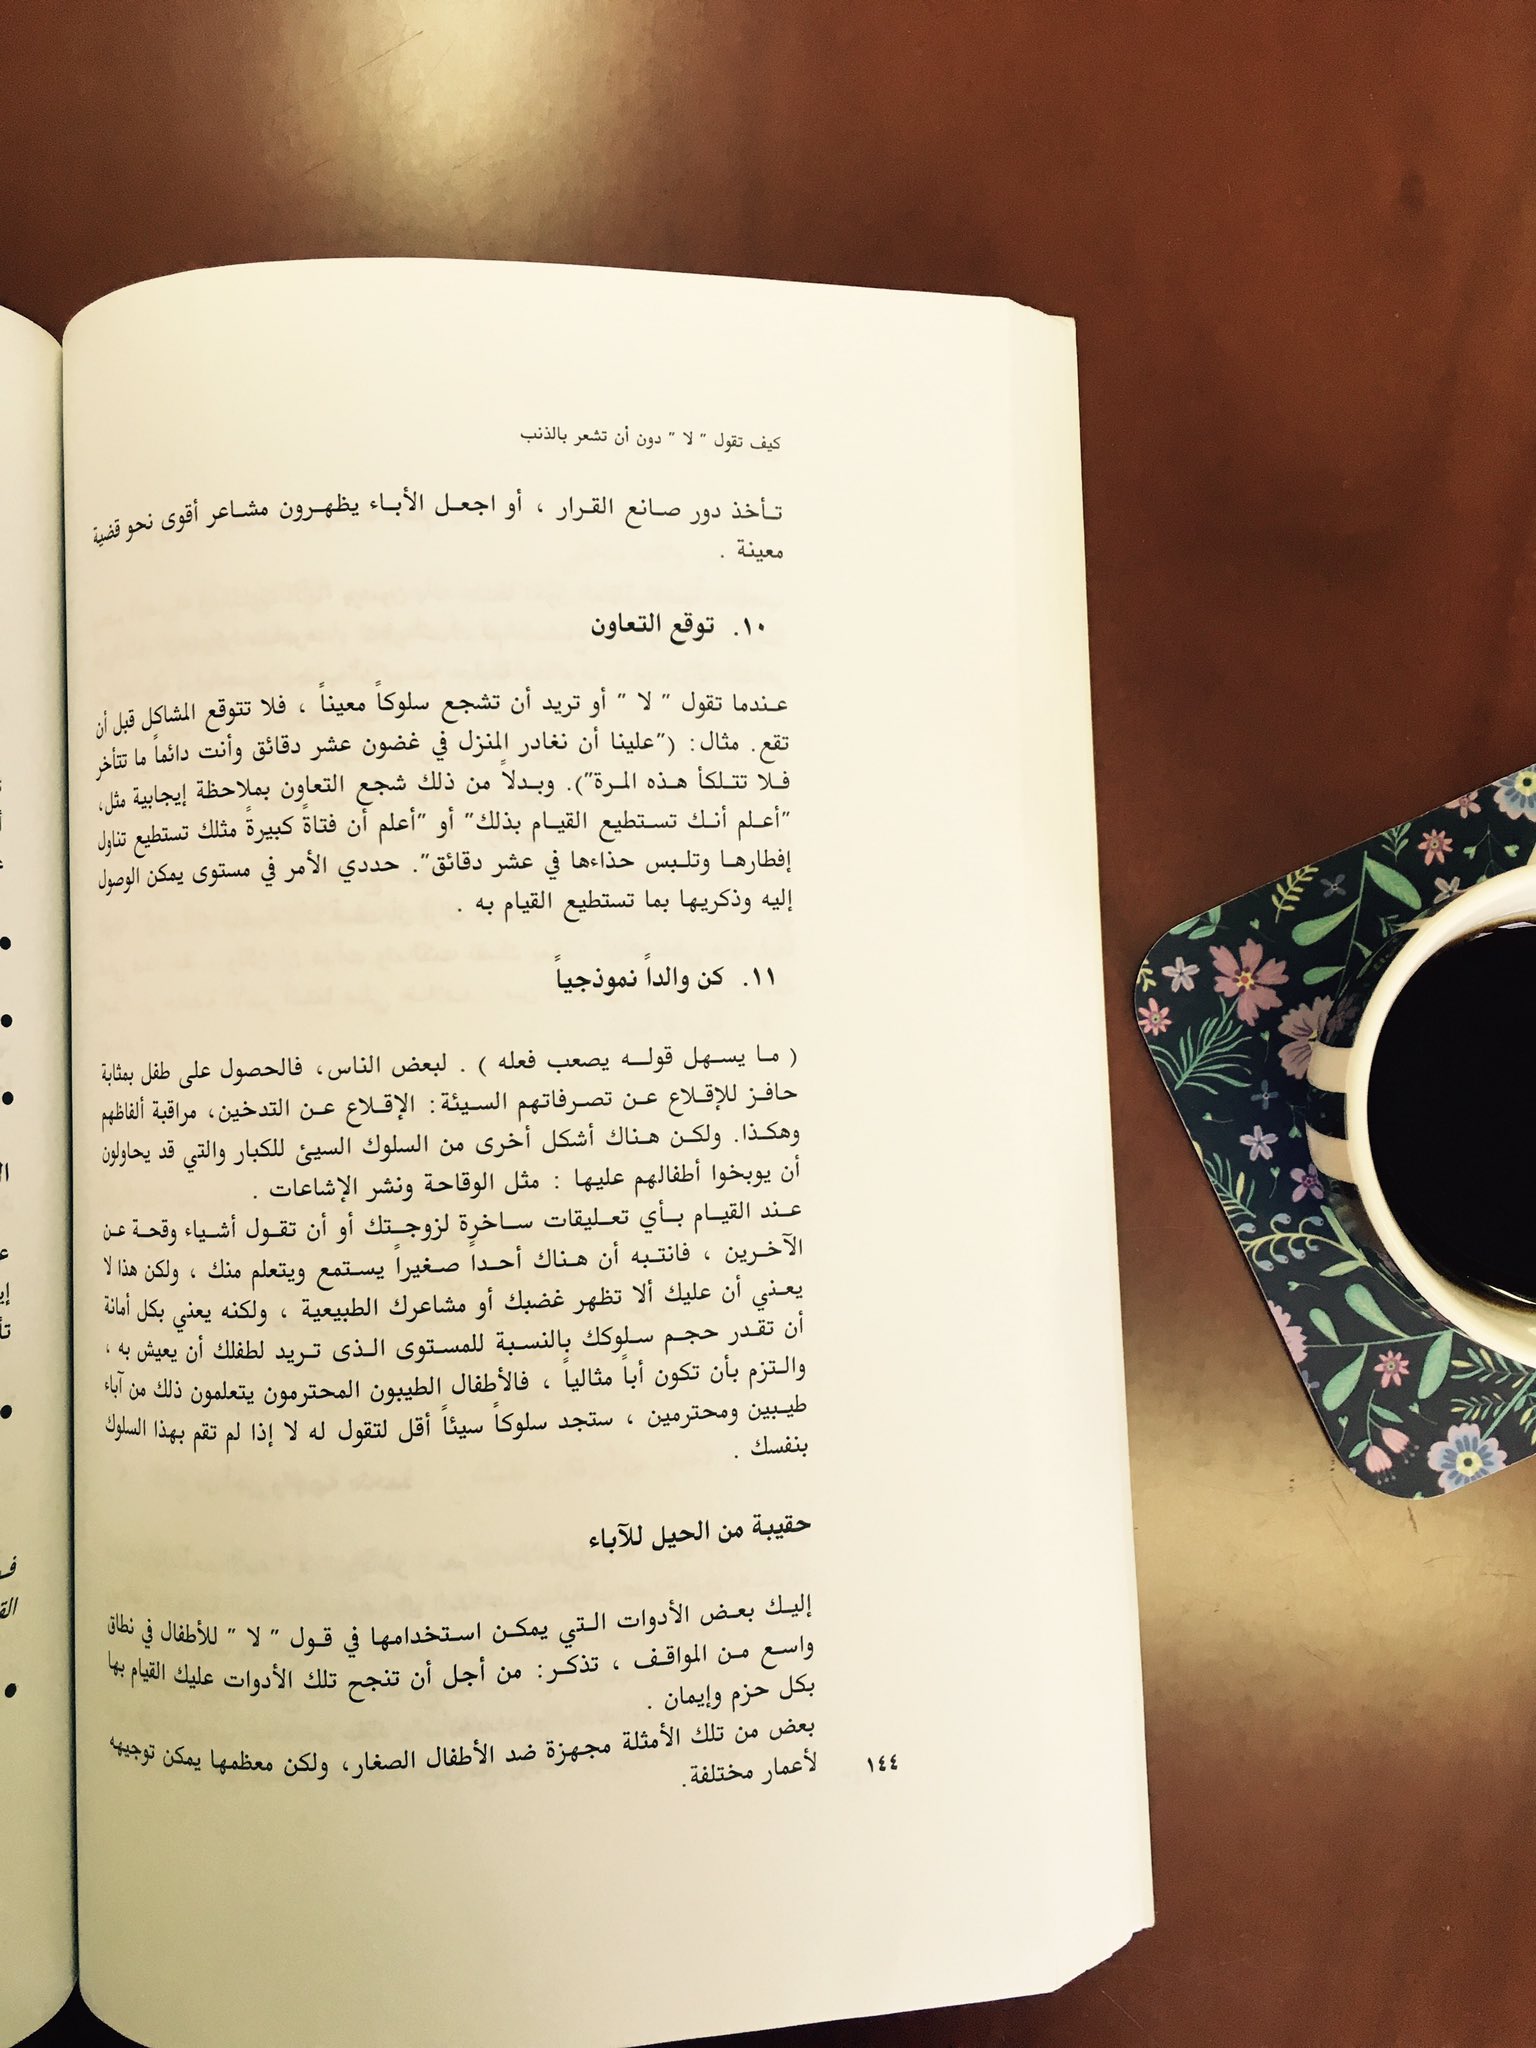 كيف تقول " لا " دون أن تشعر بالذنب
تأخذ دور صانع القرار ، أو اجعل الأباء يظهرون مشاعر أقوى نحو قضية
معينة .
١٠. توقع التعاون
عندما تقول " لا " أو تريد أن تشجع سلوكاً معيناً ، فلا تتوقع المشاكل قبل أن
تقع. مثال: ("علينا أن نغادر المنزل في غضون عشر دقائق وأنت دائماً ما تتأخر
فلا تتلكأ هذه المرة"). وبدلاً من ذلك شجع التعاون بملاحظة إيجابية مثل،
"أعلم أنك تستطيع القيام بذلك" أو "أعلم أن فتاةً كبيرةً مثلك تستطيع تناول
إفطارها وتلبس حذاءها في عشر دقائق". حددي الأمر في مستوى يمكن الوصول
إليه وذكريها بما تستطيع القيام به .
١١. كن والداً نموذجياً
( ما يسهل قوله يصعب فعله ) . لبعض الناس، فالحصول على طفل بمثابة
حافز للإقلاع عن تصرفاتهم السيئة: الإقلاع عن التدخين، مراقبة ألفاظهم
وهكذا. ولكن هناك أشكل أخرى من السلوك السيئ للكبار والتي قد يحاولون
أن يوبخوا أطفالهم عليها : مثل الوقاحة ونشر الإشاعات .
عند القيام بأي تعليقات ساخرة لزوجتك أو أن تقول أشياء وقحة عن
الآخرين ، فانتبه أن هناك أحداً صغيراً يستمع ويتعلم منك ، ولكن هذا لا
يعني أن عليك ألا تظهر غضبك أو مشاعرك الطبيعية ، ولكنه يعني بكل أمانة
أن تقدر حجم سلوكك بالنسبة للمستوى الذى تريد لطفلك أن يعيش به ،
والتزم بأن تكون أباً مثالياً ، فالأطفال الطيبون المحترمون يتعلمون ذلك من آباء
طيبين ومحترمين ، ستجد سلوكاً سيئاً أقل لتقول له لا إذا لم تقم بهذا السلوك
بنفسك .
حقيبة من الحيل للآباء
إليك بعض الأدوات التي يمكن استخدامها في قول " لا " للأطفال في نطاق
واسع من المواقف ، تذكر: من أجل أن تنجح تلك الأدوات عليك القيام بها
بكل حزم وإيمان .
بعض من تلك الأمثلة مجهزة ضد الأطفال الصغار، ولكن معظمها يمكن توجيهه
لأعمار مختلفة.
١٤٤